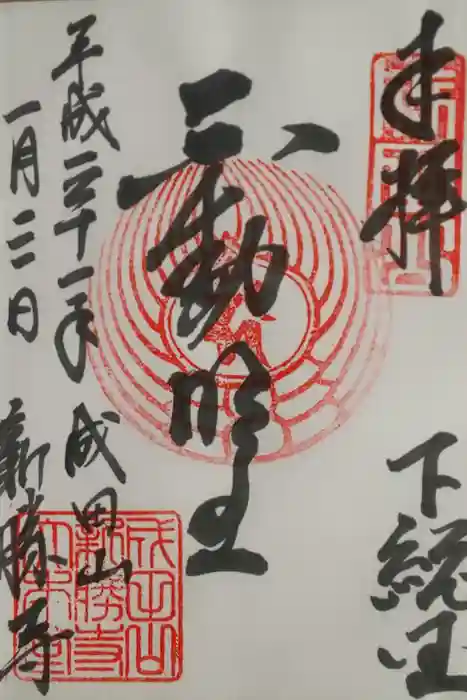 奉拝 下総国
不動明王
平成三十一年 成田山
一月三日 新勝寺
成田山
新勝寺
大本堂